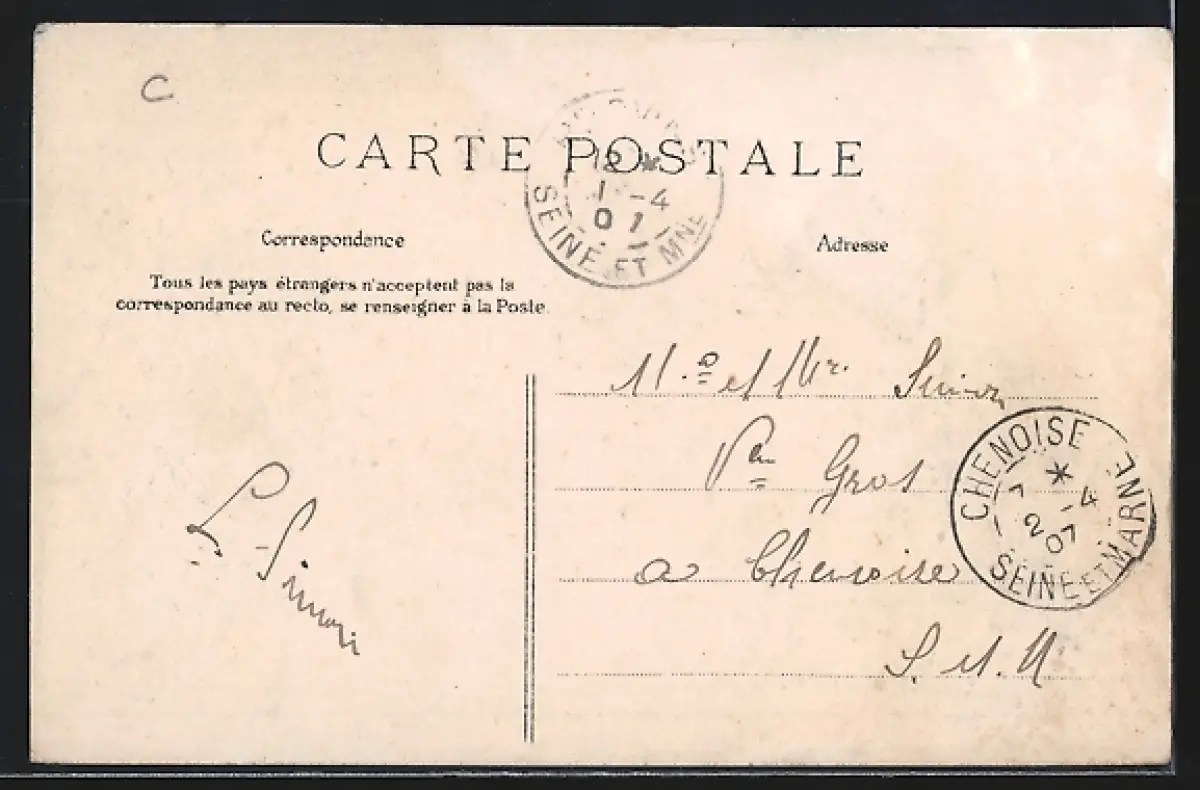 C
CARTE POSTALE
12 *
1 -4
07
SEINE ET MNE
Correspondance
Adresse
Tous les pays étrangers n'acceptent pas la
correspondance au recto, se renseigner à la Poste.
et Mr. Simon
Gros
a Chenoise
S. et. M
CHENOISE
*
7
2 -4
07
SEINE-ET-MARNE
L. Simon